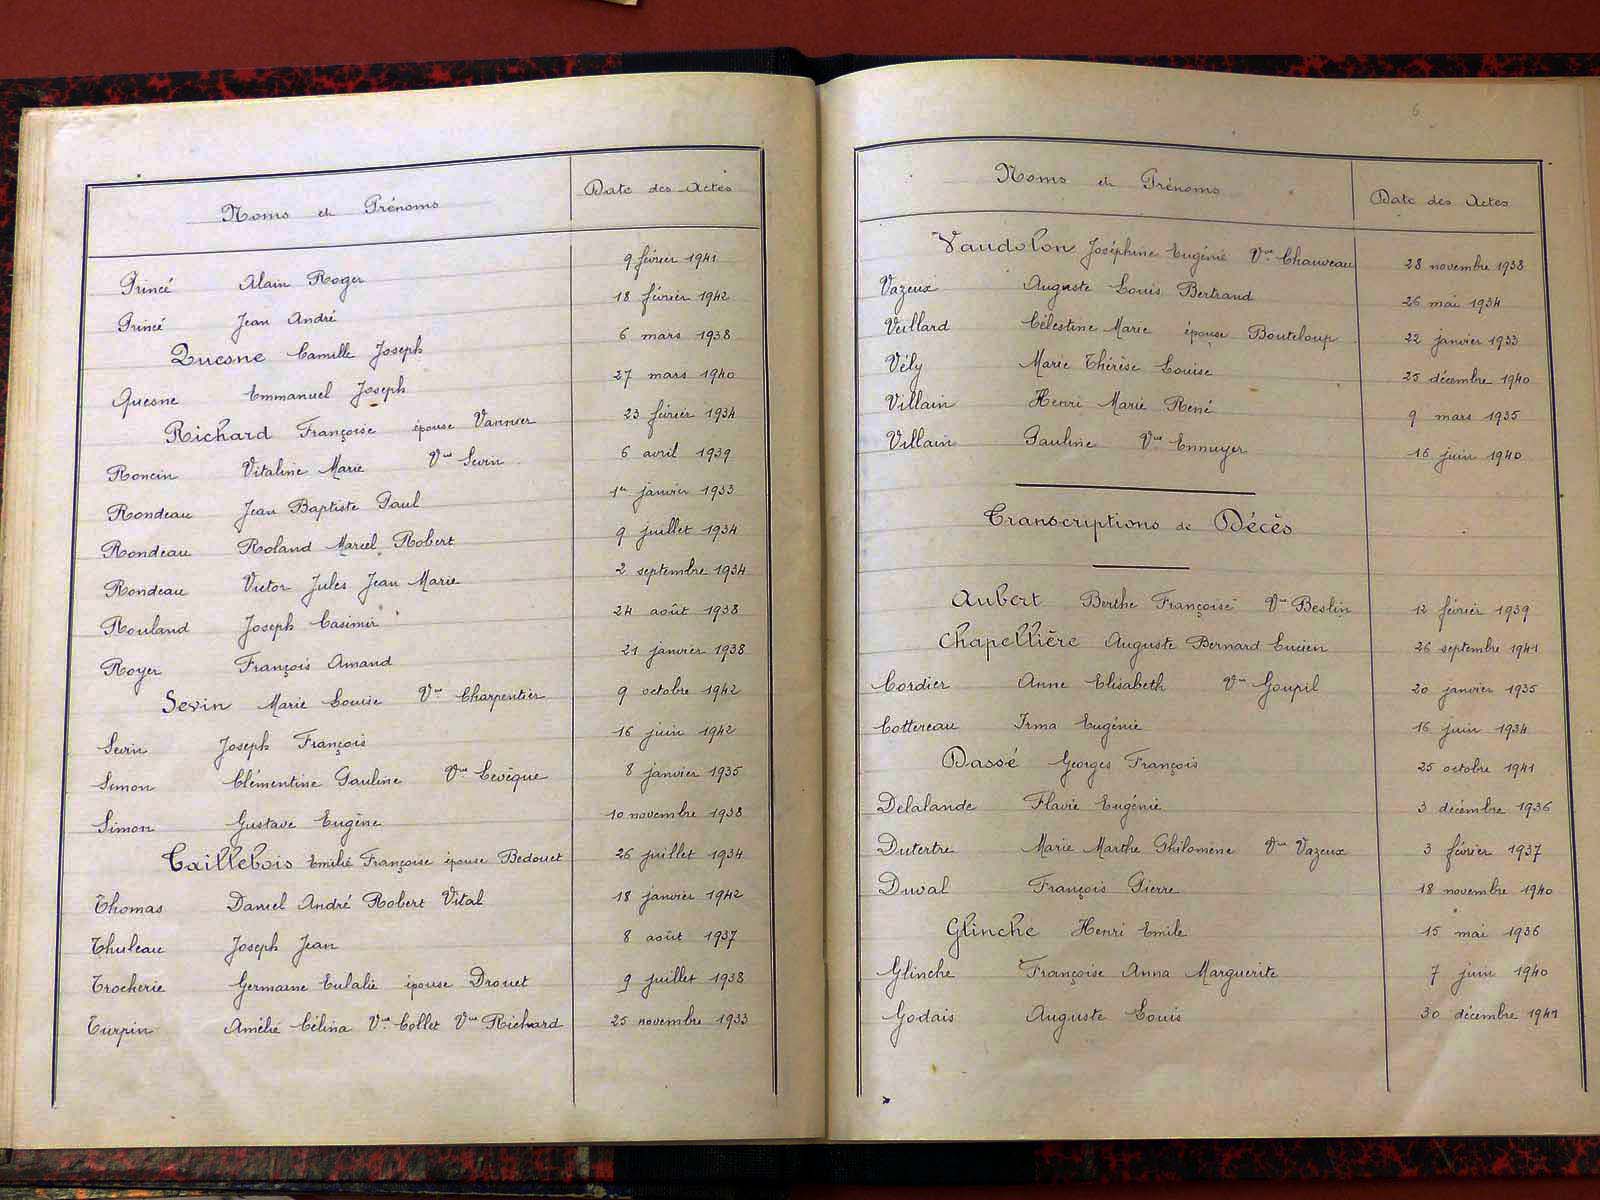 Noms et Prénoms Date des Actes
Princé Alain Roger 9 février 1941
Princé Jean André 18 février 1942
Quesne Camille Joseph 6 mars 1938
Quesne Emmanuel Joseph 27 mars 1940
Richard Françoise épouse Vannier 23 février 1934
Roncin Vitaline Marie Vve Sevin 6 avril 1939
Rondeau Jean Baptiste Paul 1er janvier 1933
Rondeau Roland Marcel Robert 9 juillet 1934
Rondeau Victor Jules Jean Marie 2 septembre 1934
Rouland Joseph Casimir 24 août 1938
Royer François Amand 21 janvier 1938
Sevin Marie Louise Vve Charpentier 9 octobre 1942
Sevin Joseph François 16 juin 1942
Simon Clémentine Pauline Vve Levêque 8 janvier 1935
Simon Gustave Eugène 10 novembre 1938
Taillebois Emilie Françoise épouse Bedouet 26 juillet 1934
Thomas Daniel André Robert Vital 18 janvier 1942
Thuleau Joseph Jean 8 août 1937
Trocherie Germaine Eulalie épouse Drouet 9 juillet 1938
Turpin Amélie Célina Vve Collet Vve Richard 25 novembre 1933
6
Noms et Prénoms Date des Actes
Vaudolon Joséphine Eugénie Vve Chauveau 28 novembre 1938
Vazeux Auguste Louis Bertrand 26 mai 1934
Veillard Célestine Marie épouse Bouteloup 22 janvier 1933
Vély Marie Thérèse Louise 25 décembre 1940
Villain Henri Marie René 9 mars 1935
Villain Pauline Vve Ennuyer 16 juin 1940
Transcriptions de Décès
Aubert Berthe Françoise Vve Beslin 12 février 1939
Chapellière Auguste Bernard Lucien 26 septembre 1941
Cordier Anne Elisabeth Vve Goupil 20 janvier 1935
Cottereau Irma Eugénie 16 juin 1934
Dassé Georges François 25 octobre 1941
Delalande Flavie Eugénie 3 décembre 1936
Dutertre Marie Marthe Philomène Vve Vazeux 3 février 1937
Duval François Pierre 18 novembre 1940
Glinche Henri Emile 15 mai 1936
Glinche Françoise Anna Marguerite 7 juin 1940
Godais Auguste Louis 30 décembre 1941